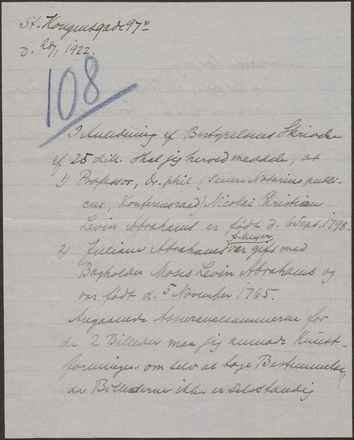 St. Kongensgade 97
d. 28/1 1922.
108
I Anledning af Bestyrelsens Skrivelse
af 25 ds. skal jeg herved meddele, at
1) Professor, Dr. phil. (senere Notarius publi-
cus, Konferensraad) Nicolai Christian
Levin Abrahams er født d. 6 Sept. 1798.
2) Juliane Abrahams var gift med
Bogholder Moses Levin Abrahams og
var født d. 5 November 1765.
Angaaende Assurancesummerne for
de 2 Billeder maa jeg anmode Kunst-
foreningen om selv at tage Bestemmelse,
da Billederne ikke er selvstændig